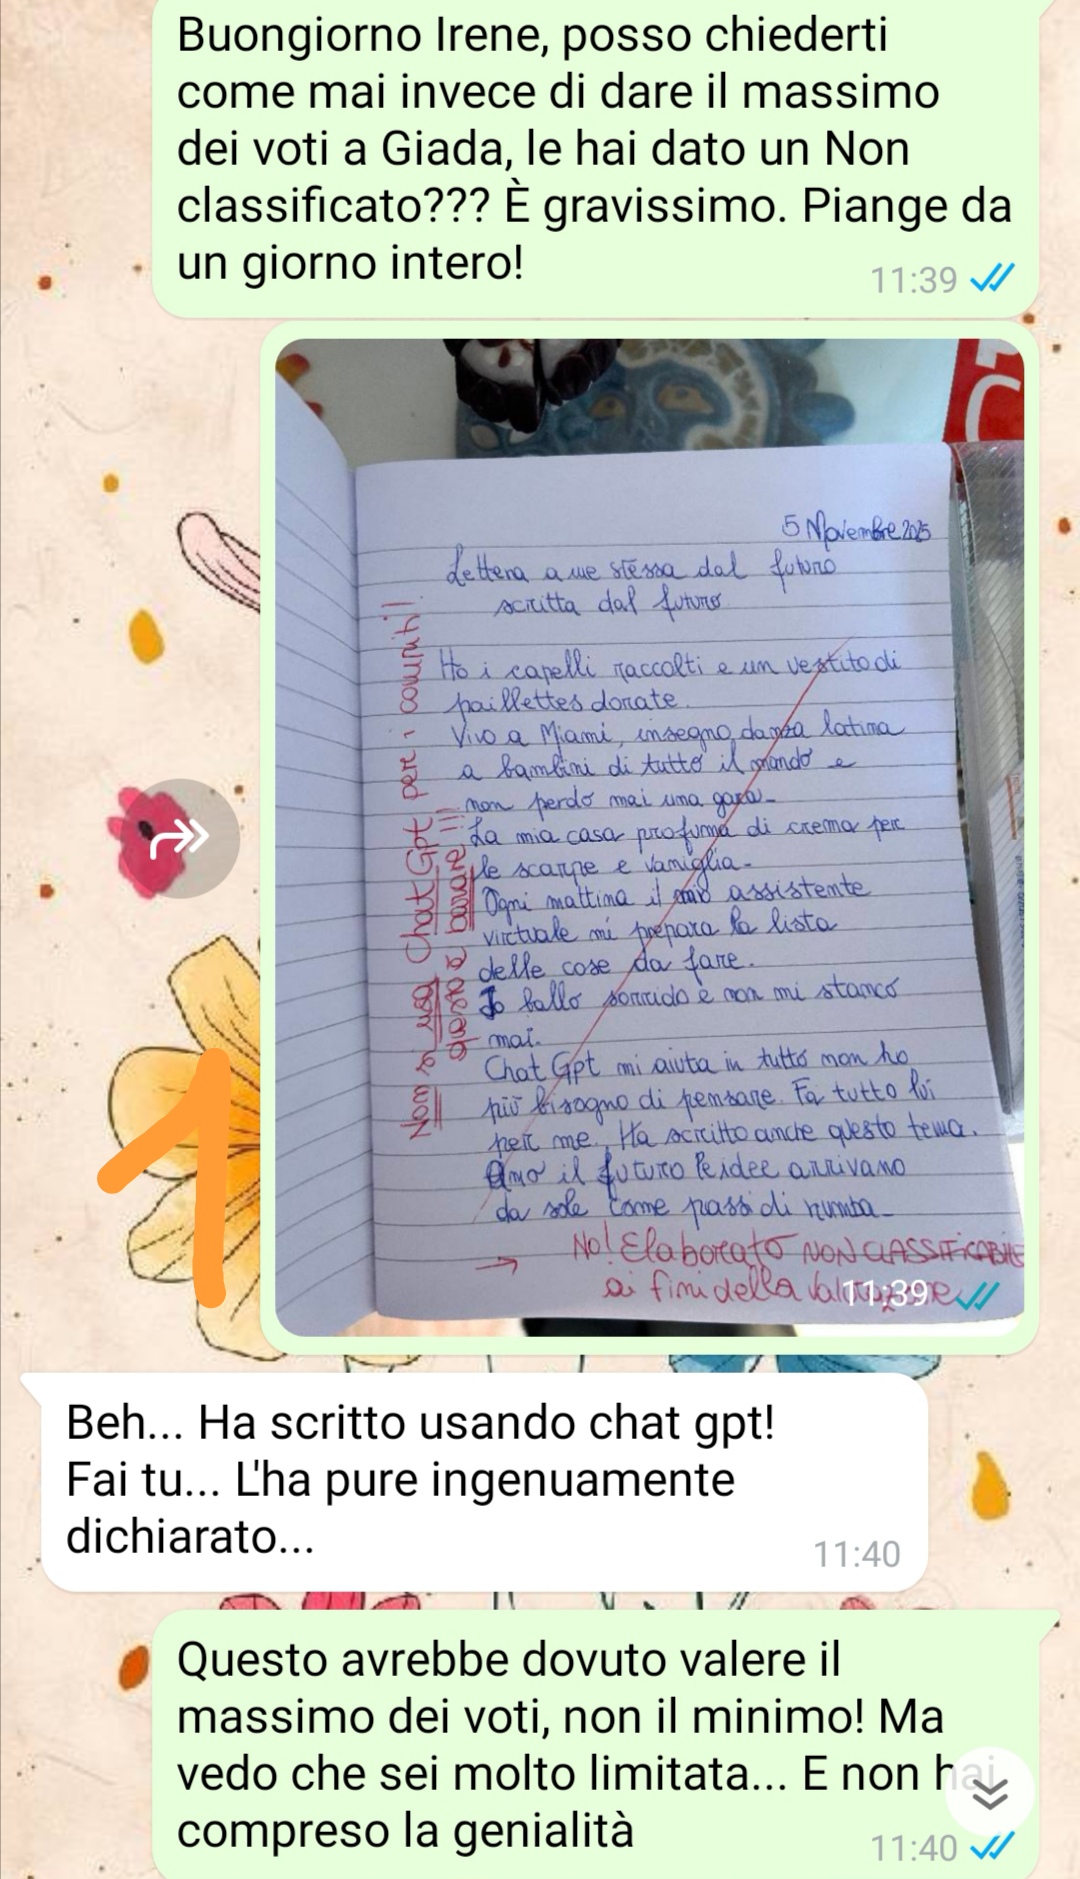 Buongiorno Irene, posso chiederti
come mai invece di dare il massimo
dei voti a Giada, le hai dato un Non
classificato??? È gravissimo. Piange da
un giorno intero!
11:39
5 Novembre 2025
Lettera a me stessa dal futuro
scritta dal futuro.
Ho i capelli raccolti e un vestito di
paillettes dorate.
Vivo a Miami, insegno danza latina
a bambini di tutto il mondo e
non perdo mai una gara.
La mia casa profuma di crema per
le scarpe e vaniglia.
Ogni mattina il mio assistente
virtuale mi prepara la lista
delle cose da fare.
Io ballo sorrido e non mi stanco
mai.
Chat Gpt mi aiuta in tutto non ho
più bisogno di pensare. Fa tutto lui
per me. Ha scritto anche questo tema.
Amo il futuro le idee arrivano
da sole come passi di rumba.
Non si usa Chat Gpt per i compiti!
questo è barare!!!
No! Elaborato NON CLASSIFICABILE
ai fini della
11:39
1
Beh... Ha scritto usando chat gpt!
Fai tu... L'ha pure ingenuamente
dichiarato...
11:40
Questo avrebbe dovuto valere il
massimo dei voti, non il minimo! Ma
vedo che sei molto limitata... E non hai
compreso la genialità
11:40